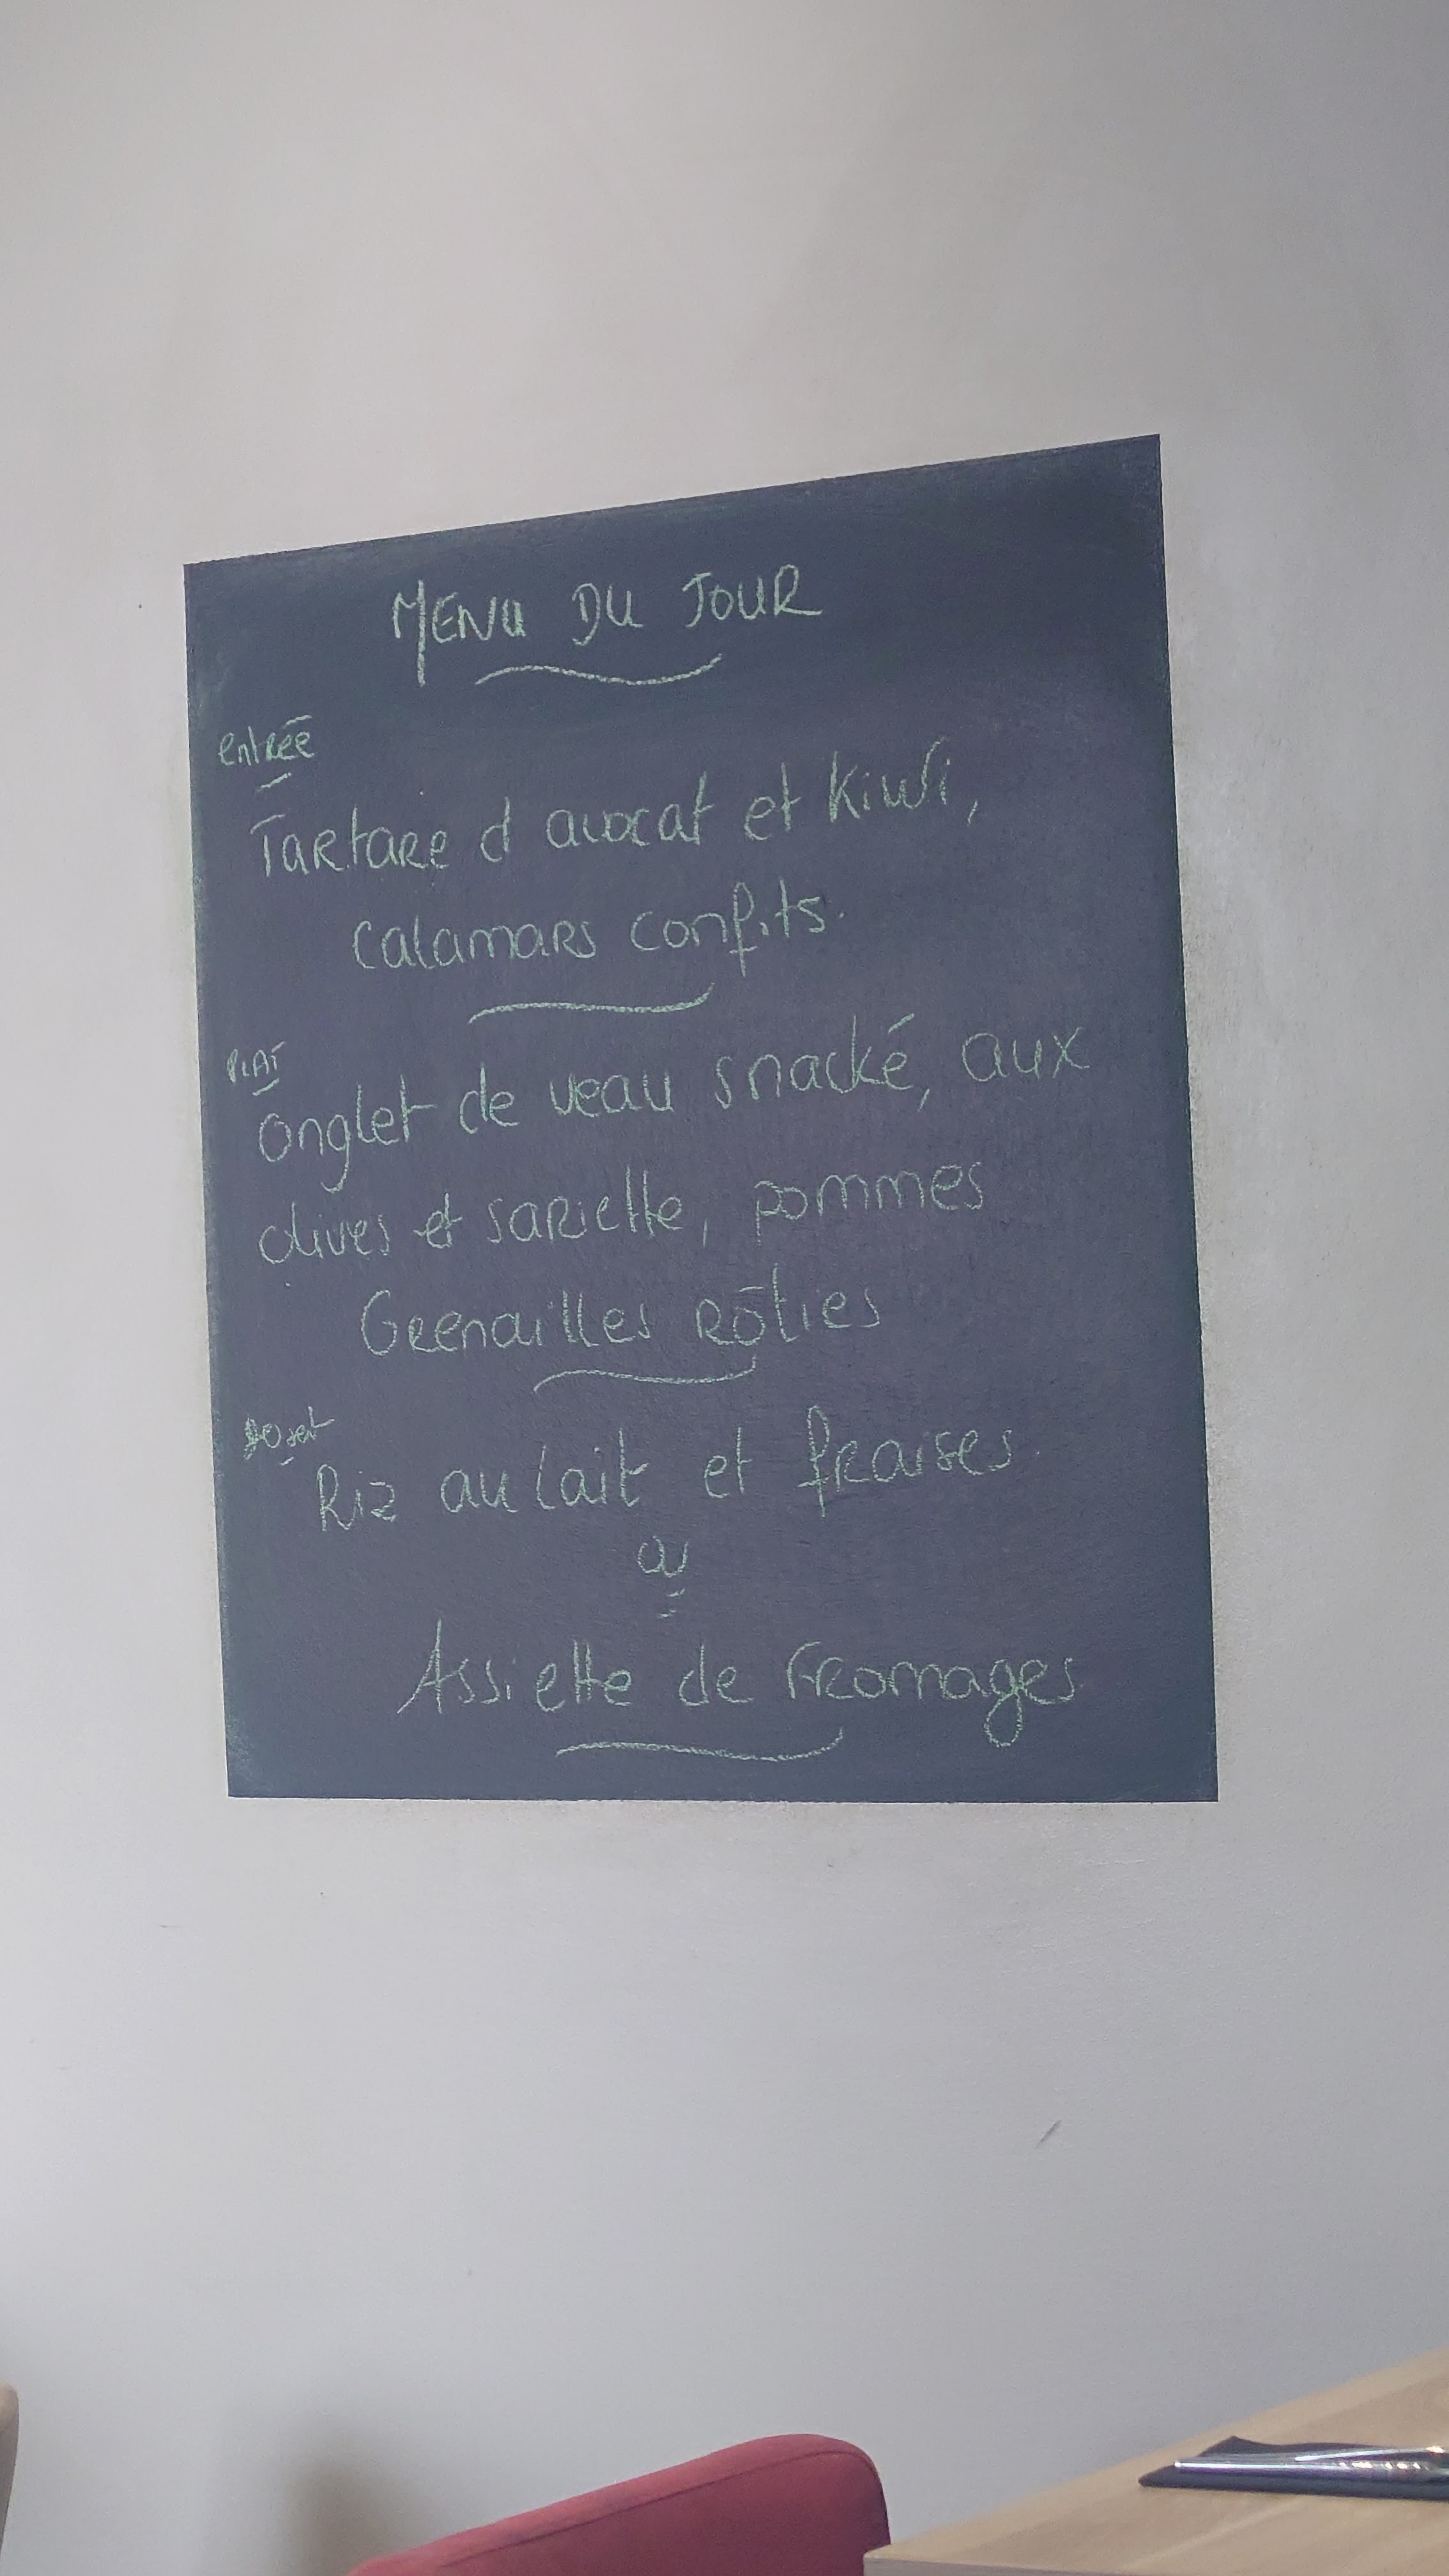 MENU DU JOUR
entrée
Tartare d avocat et Kiwi,
Calamars confits.
PLAT
Onglet de veau snacké, aux
olives et sariette, pommes
Grenailles Rôties
Riz au lait et fraises.
ou
Assiette de Fromages